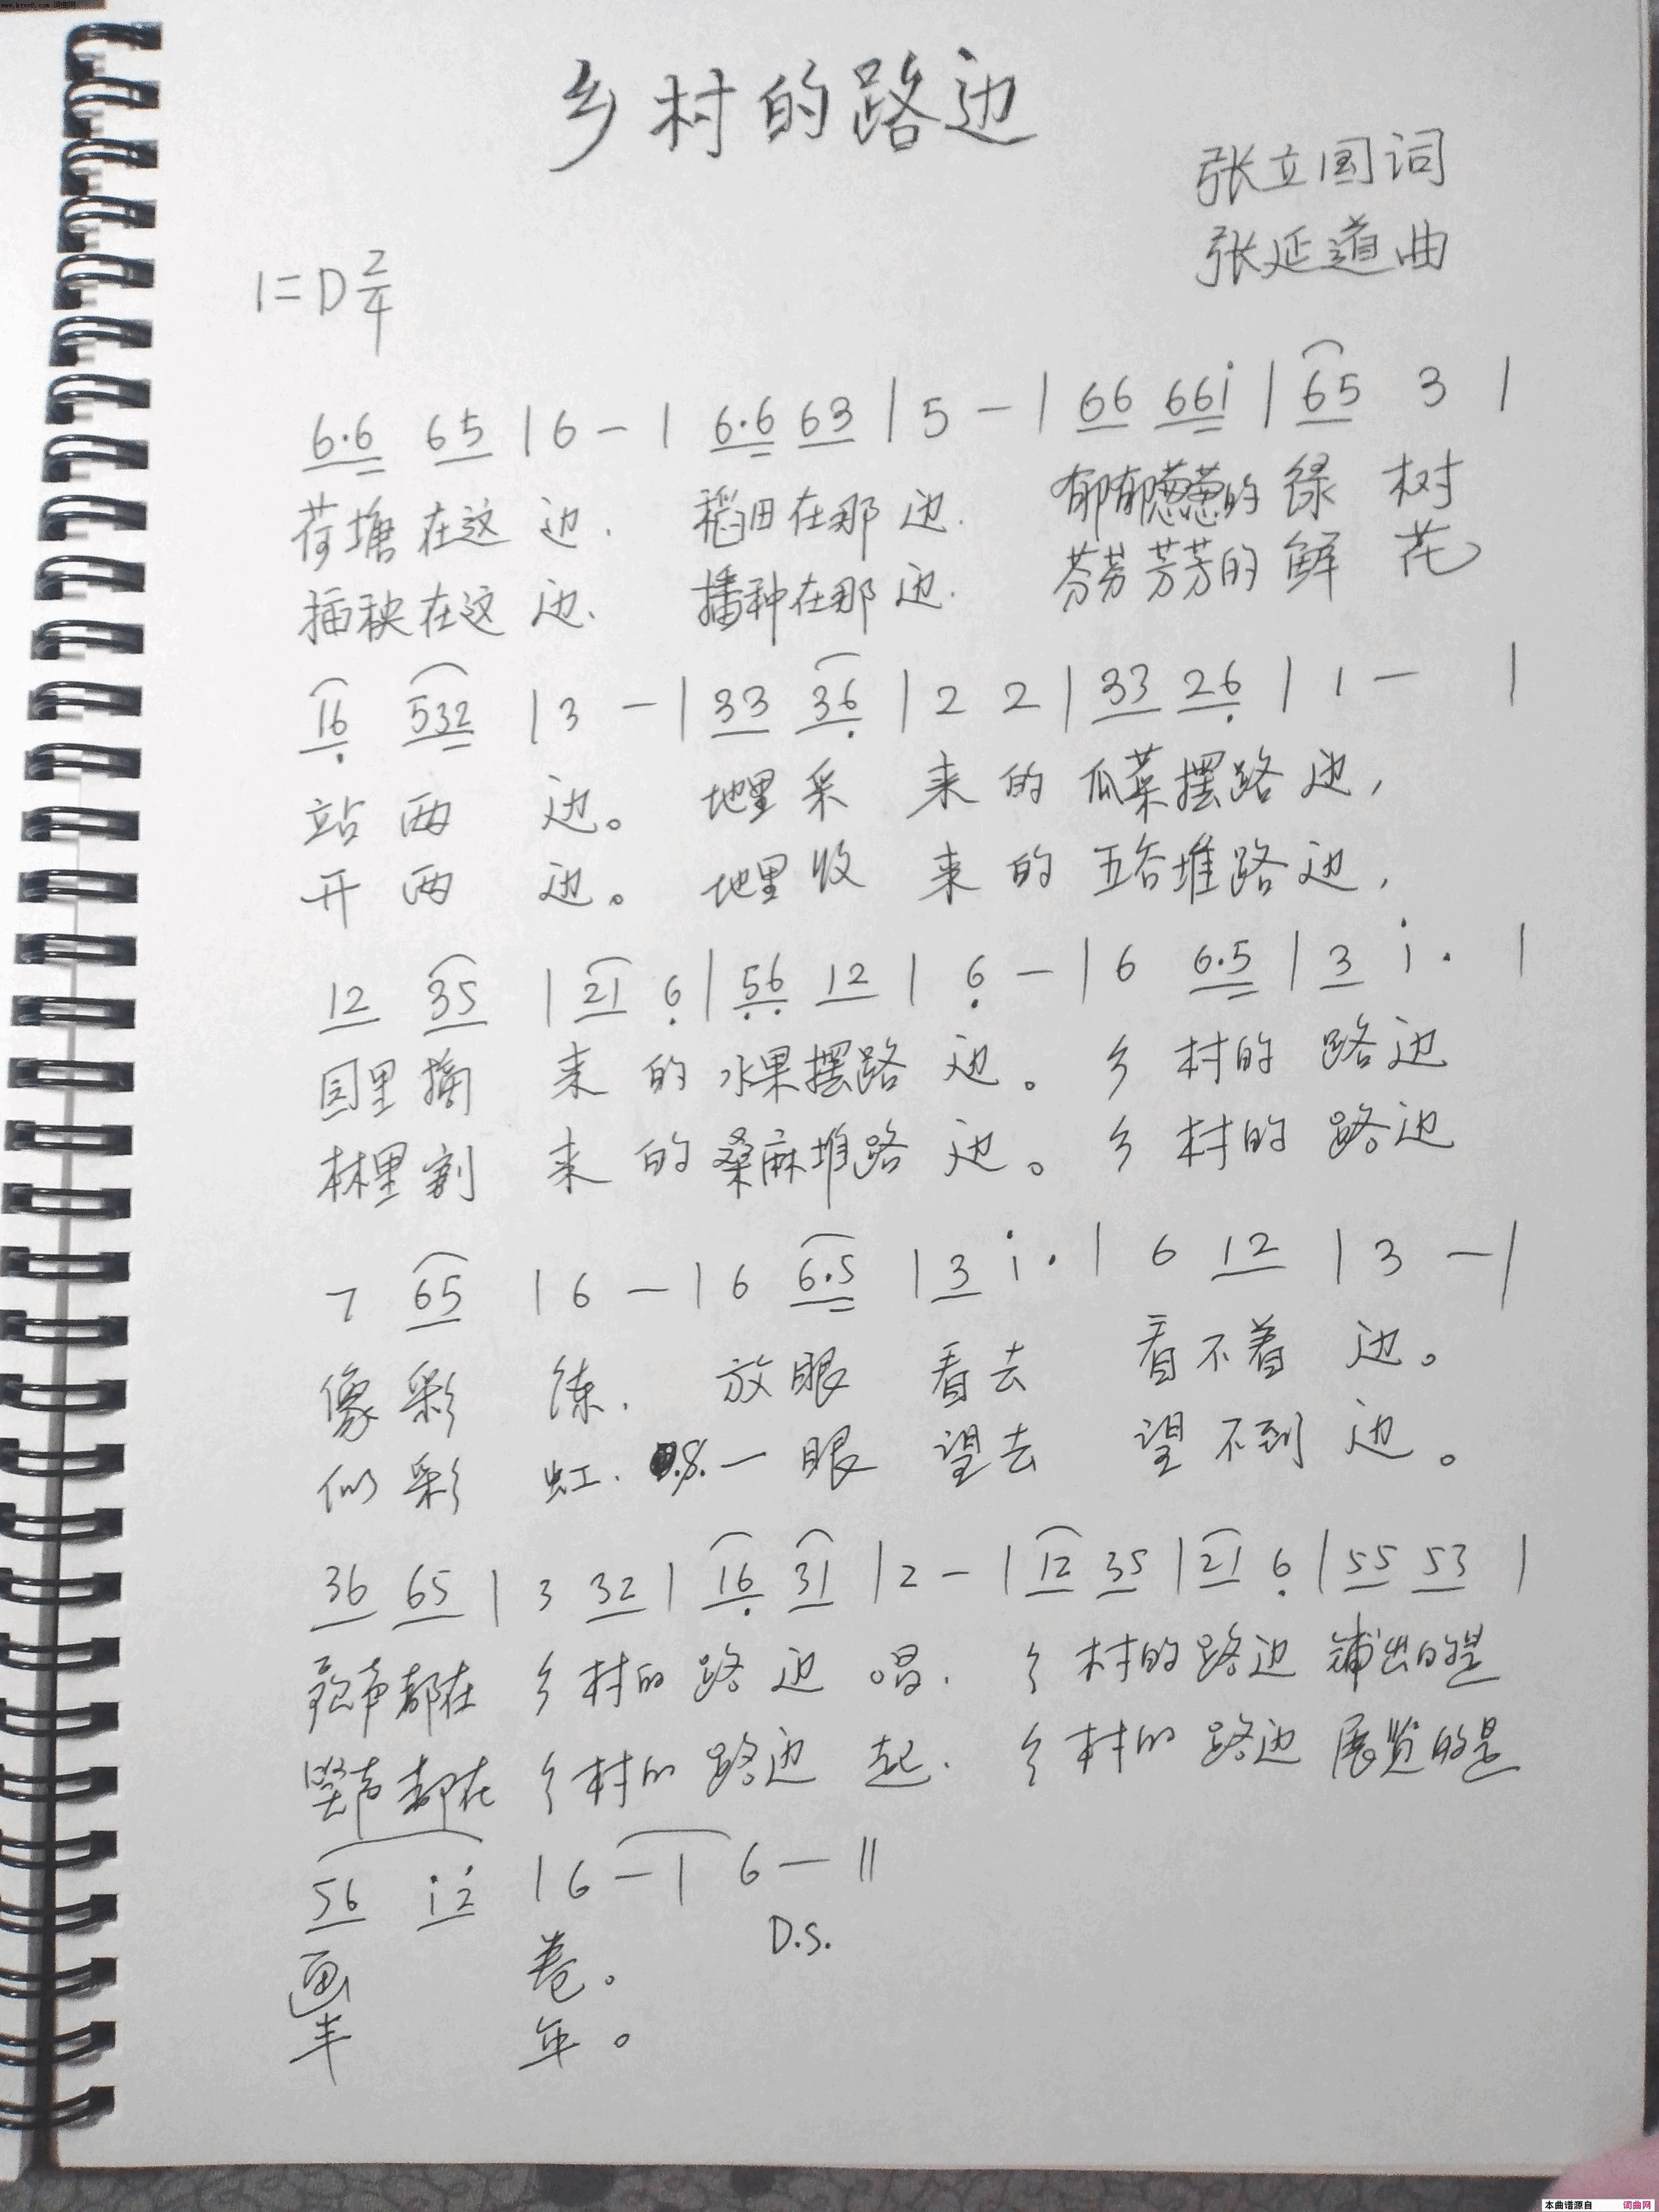 乡村的路边
张立国词
张延道曲
1=D 2/4
6·6 65 | 6 - | 6·6 63 | 5 - | 66 66i | 65 3 |
荷塘在这边. 稻田在那边. 郁郁葱葱的绿树
插秧在这边. 播种在那边. 芬芬芳芳的鲜花
16 532 | 3 - | 33 36 | 2 2 | 33 26 | 1 - |
站两边。 地里采来的瓜菜摆路边,
开两边。 地里收来的五谷堆路边,
12 35 | 21 6 | 56 12 | 6 - | 6 6·5 | 3 i· |
园里摘来的水果摆路边。 乡村的路边
林里割来的桑麻堆路边。 乡村的路边
7 65 | 6 - | 6 6·5 | 3 i· | 6 12 | 3 - |
像彩练. 放眼看去 看不着边。
似彩虹. 一眼望去 望不到边。
36 65 | 3 32 | 16 31 | 2 - | 12 35 | 21 6 | 55 53 |
声都在乡村的路边唱. 乡村的路边铺出的是
声都在乡村的路边起. 乡村的路边展览的是
56 i2 | 6 - | 6 - ‖
D.S.
画卷。
丰年。
本曲谱源自 词曲网